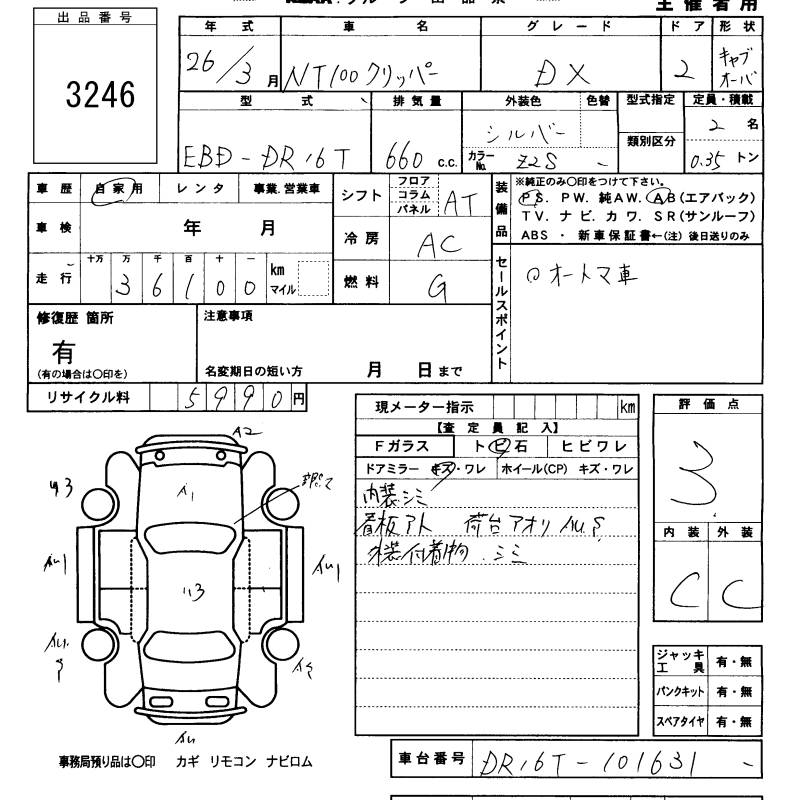 出品番号
3246
主催者用
年式 車名 グレード ドア 形状
26/3月 NT100クリッパー DX 2 キャブオーバ
型式 排気量 外装色 色替 型式指定 定員・積載
EBD-DR16T 660 c.c. シルバー 類別区分 2名
カラーNo. Z2S - 0.35トン
車歴 自家用 レンタ 事業.営業車 シフト フロア コラム パネル AT
車検 年 月 冷房 AC
走行 十万 万 千 百 十 一 km マイル
36100 燃料 G
装備品 ※純正のみ〇印をつけて下さい。
PS. PW. 純AW. AB(エアバック)
TV. ナビ. カワ. SR(サンルーフ)
ABS ・ 新車保証書←(注)後日送りのみ
セールスポイント オートマ車
修復歴 箇所 注意事項
有
(有の場合は〇印を) 名変期日の短い方 月 日まで
リサイクル料 5990円
現メーター指示 km
【査定員記入】
Fガラス トビ石 ヒビワレ
ドアミラー キズ・ワレ ホイール(CP) キズ・ワレ
内装シミ
看板アト 荷台アオリ AU.S
外装付着物.シミ
評価点
3
内装 外装
C C
A2
A1
U3
AU1
AU1
AU
ジャッキ工具 有・無
パンクキット 有・無
スペアタイヤ 有・無
事務局預り品は〇印 カギ リモコン ナビロム
車台番号 DR16T-101631 -